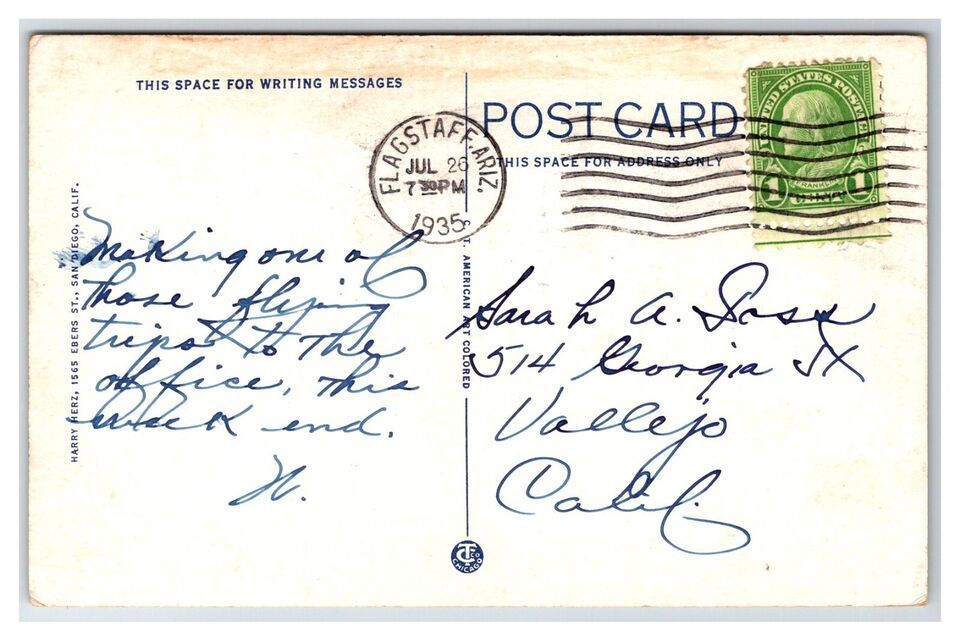 THIS SPACE FOR WRITING MESSAGES
POST CARD
THIS SPACE FOR ADDRESS ONLY
UNITED STATES POSTAGE
FRANKLIN
1 1
FLAGSTAFF, ARIZ.
JUL 26
7 30 PM
1935
HARRY HERZ, 1565 EBERS ST., SAN DIEGO, CALIF.
C. T. AMERICAN ART COLORED
Making one of
those flying
trips to the
office, this
week end.
Sarah A.
514 Georgia
Vallejo
Calif.
CHICAGO